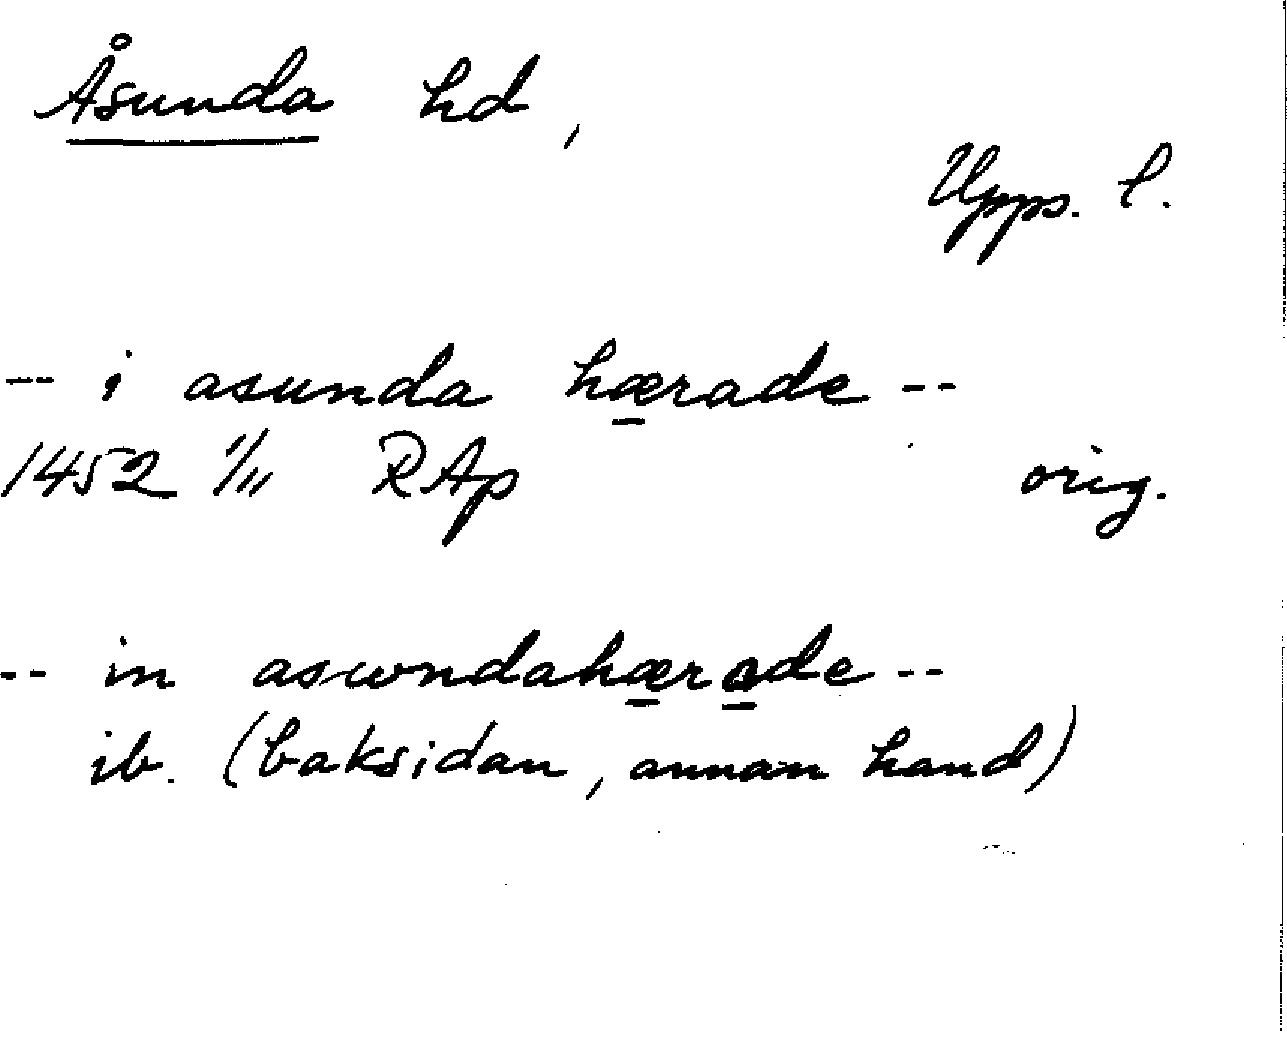 Åsunda hd,
Upps. l.
-- i asunda hærade --
1452 1/11 RAp orig.
-- in aswndahærade --
ib. (baksidan, annan hand)